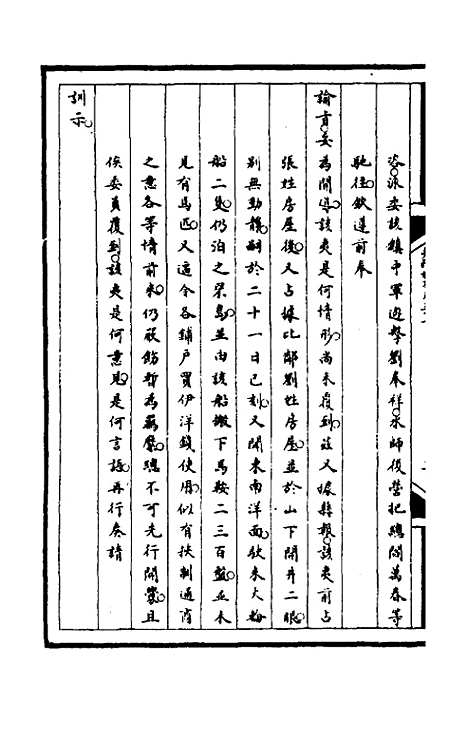 咨。派委該鎮中軍遊擊劉奉祥。水師後營把總閻萬春等
馳往。欽遵前奉
諭旨。妥為開導。該夷是何情形。尚未覆到。茲又據縣報。該夷前占
張姓房屋後。又占據比鄰劉姓房屋。並於山下開井二眼。
別無動靜。嗣於二十一日已刻。又開來南洋面。駛來大輪
船二隻。仍泊之罘島。並由該船搬下馬鞍二三百盤。並未
見有馬匹。又逼令各鋪戶買伊洋錢使用。似有挾制通商
之意各等情前來。仍嚴飭暫為羈縻。總不可先行開釁。且
俟委員覆到。該夷是何意見。是何言語。再行奏請
訓示。